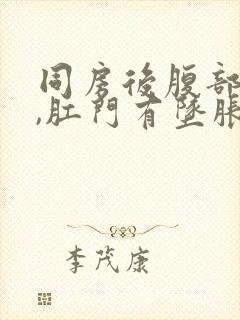 同房後腹部
,肛門有墜脹
李茂康